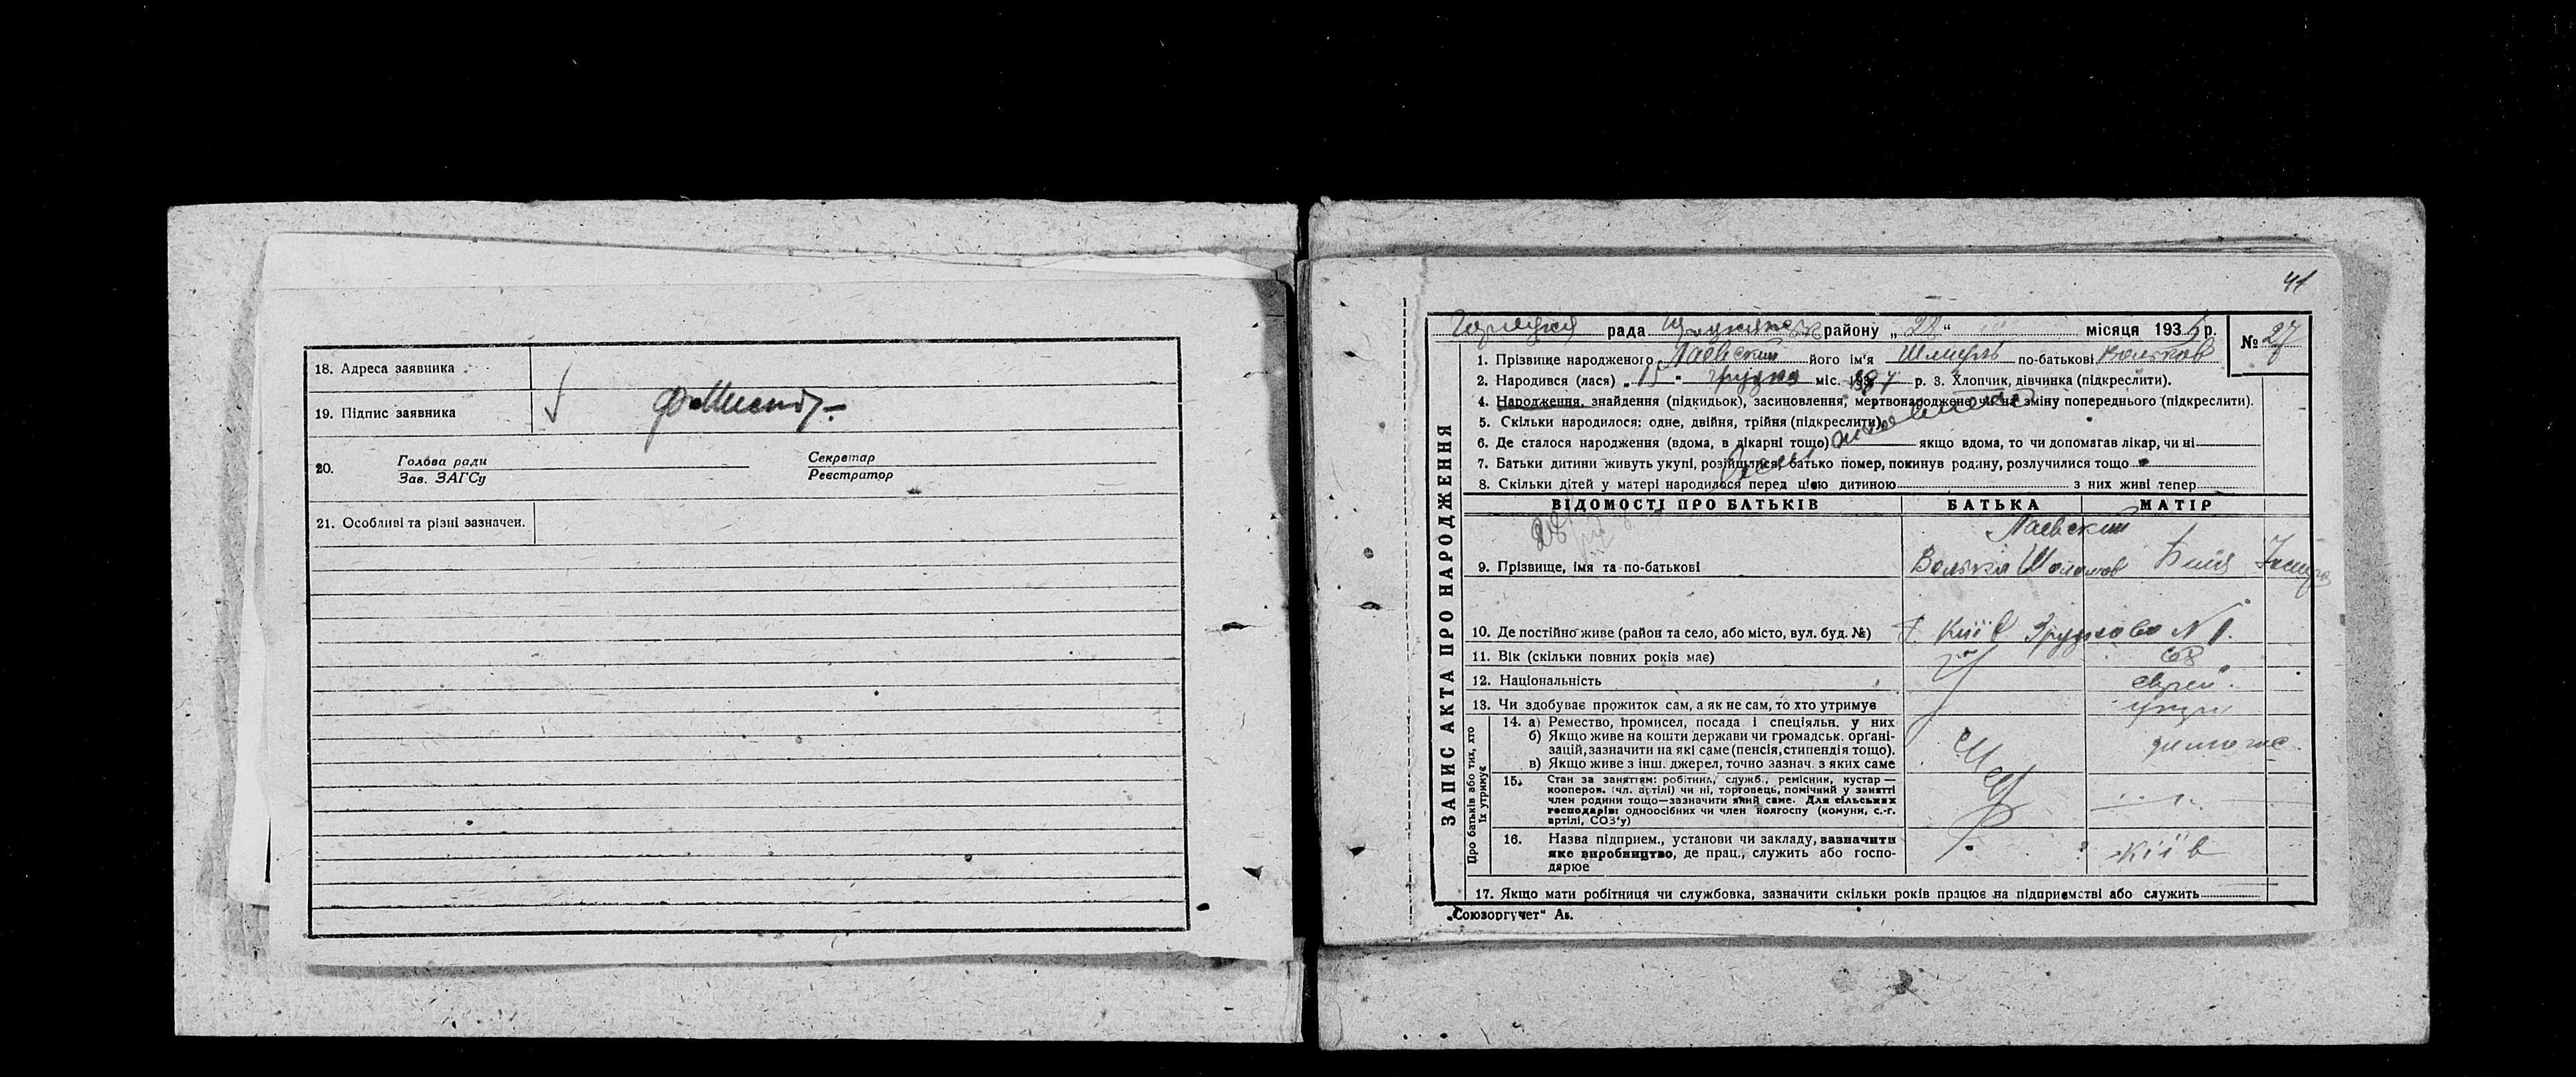 18. Адреса заявника
19. Підпис заявника
20. Голова ради
Зав. ЗАГСу
Секретар
Реєстратор
21. Особливі та різні зазначен.
41
рада району „28“ місяця 1935 р. № 27
ЗАПИС АКТА ПРО НАРОДЖЕННЯ
1. Прізвище народженого Лаевский його ім'я по-батькові Вольков
2. Народився (лася) „15“ грудня міс. р. 3. Хлопчик, дівчинка (підкреслити).
4. Народження, знайдення (підкидьок), засиновлення, мертвонароджене чи на зміну попереднього (підкреслити).
5. Скільки народилося: одне, двійня, трійня (підкреслити)
6. Де сталося народження (вдома, в лікарні тощо) якщо вдома, то чи допомагав лікар, чи ні
7. Батьки дитини живуть укупі, розійшлися, батько помер, покинув родину, розлучилися тощо
8. Скільки дітей у матері народилося перед цією дитиною з них живі тепер
ВІДОМОСТІ ПРО БАТЬКІВ БАТЬКА МАТІР
Лаевский
9. Прізвище, імя та по-батькові Волька Шоломов
10. Де постійно живе (район та село, або місто, вул. буд. №) Київ № 1.
11. Вік (скільки повних років має) 68
12. Національність еврей.
13. Чи здобуває прожиток сам, а як не сам, то хто утримує
Про батьків або тих, хто їх утримує
14. а) Ремество, промисел, посада і спеціяльн. у них
б) Якщо живе на кошти держави чи громадськ. організацій, зазначити на які саме (пенсія, стипендія тощо).
в) Якщо живе з інш. джерел, точно зазнач. з яких саме
15. Стан за заняттям: робітник, служб., ремісник, кустар —
кооперов. (чл. артілі) чи ні, торговець, помічний у занятті
член родини тощо—зазначити який саме. Для сільських
господарів: одноосібних чи член колгоспу (комуни, с.-г.
артілі, СОЗ'у)
16. Назва підприєм., установи чи закладу, вазначити
яке виробництво, де прац., служить або госпо-
дарює
Київ
17. Якщо мати робітниця чи службовка, зазначити скільки років працює на підприємстві або служить
„Союзоргучет“ Ав.